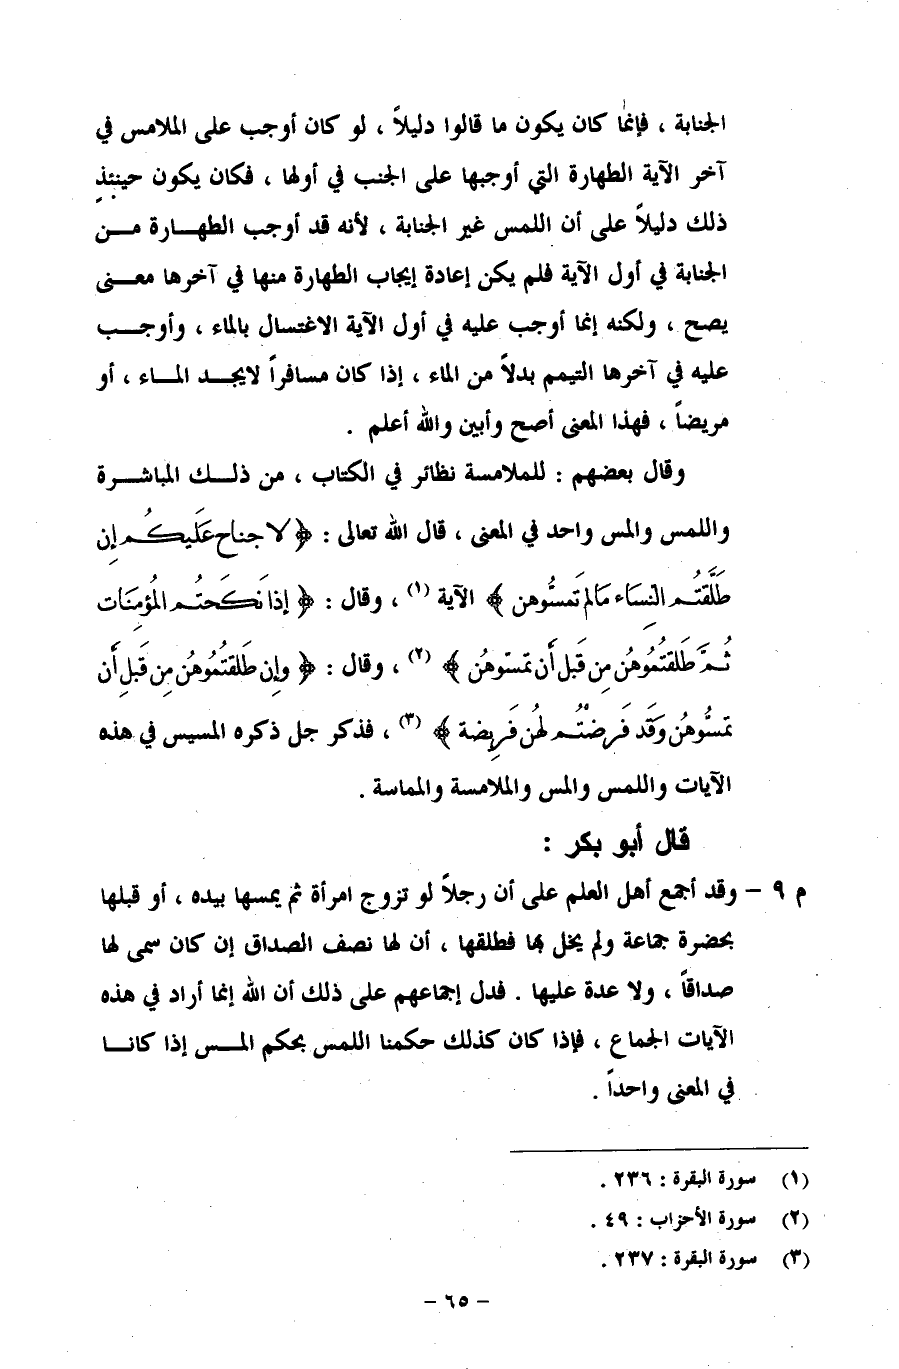 الجنابة ، فإنما كان يكون ما قالوا دليلاً ، لو كان أوجب على الملامس في
آخر الآية الطهارة التي أوجبها على الجنب في أولها ، فكان يكون حينئذ
ذلك دليلاً على أن اللمس غير الجنابة ، لأنه قد أوجب الطهـارة مـن
الجنابة في أول الآية فلم يكن إعادة إيجاب الطهارة منها في آخرها معـنى
يصح ، ولكنه إنما أوجب عليه في أول الآية الاغتسال بالماء ، وأوجـب
عليه في آخرها التيمم بدلاً من الماء ، إذا كان مسافراً لايجـد المـاء ، أو
مريضاً ، فهذا المعنى أصح وأبين والله أعلم .
وقال بعضهم : للملامسة نظائر في الكتاب ، من ذلـك المباشـرة
واللمس والمس واحد في المعنى ، قال الله تعالى : ﴿ لا جناح عَليكُم إن
طَلَّقتُم النسَاء مَالم تَمسُّوهن ﴾ الآية (١) ، وقال : ﴿ إذا نَكَحتُم المُؤمنَات
ثُمَّ طَلقتُمُوهُن مِن قَبل أن تمسّوهُن ﴾ (٢) ، وقال : ﴿ وإِن طَلقتُمُوهُن مِن قَبلِ أَن
تمسُّوهُن وَقَد فَرضْتُم لهُن فَرِيضة ﴾ (٣) ، فذكر جل ذكره المسيس في هذه
الآيات واللمس والمس والملامسة والمماسة .
قال أبو بكر :
م ٩ – وقد أجمع أهل العلم على أن رجلاً لو تزوج امرأة ثم يمسها بيده ، أو قبلها
بحضرة جماعة ولم يخل بها فطلقها ، أن لها نصف الصداق إن كان سمى لها
صداقاً ، ولا عدة عليها . فدل إجماعهم على ذلك أن الله إنما أراد في هذه
الآيات الجماع ، فإذا كان كذلك حكمنا اللمس بحكم المـس إذا كانـا
في المعنى واحداً .
(١) سورة البقرة : ٢٣٦ .
(٢) سورة الأحزاب : ٤٩ .
(٣) سورة البقرة : ٢٣٧ .
– ٦٥ –